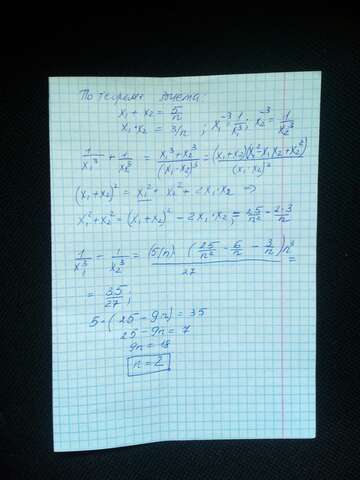 По теореме Виета:
x₁ + x₂ = 5/n
x₁ · x₂ = 3/n ; x₁⁻³ = 1/x₁³ ; x₂⁻³ = 1/x₂³
1/x₁³ + 1/x₂³ = (x₁³ + x₂³)/(x₁·x₂)³ = (x₁+x₂)(x₁²-x₁x₂+x₂²)/(x₁·x₂)³
(x₁+x₂)² = x₁² + x₂² + 2x₁·x₂ ⇒
x₁²+x₂² = (x₁+x₂)² - 2x₁·x₂ = 25/n² - 2·3/n
1/x₁³ - 1/x₂³ = (5/n) · (25/n² - 6/n - 3/n)n³/27 =
= 35/27 ;
5·(25 - 9n) = 35
25 - 9n = 7
9n = 18
n = 2